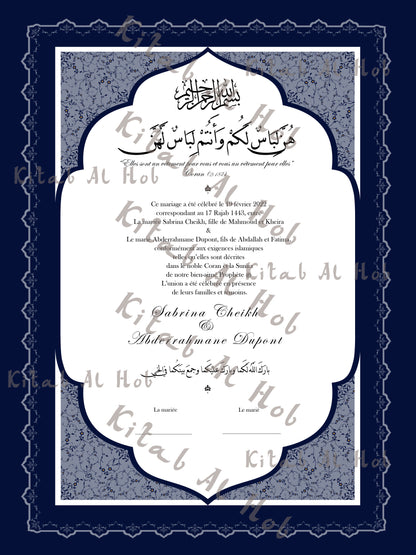 بسم الله الرحمن الرحيم
هُنَّ لِبَاسٌ لَكُمْ وَأَنْتُمْ لِبَاسٌ لَهُنَّ
"Elles sont un vêtement pour vous et vous un vêtement pour elles"
Ce mariage a été célébré le 19 février 2022
correspondant au 17 Rajab 1443, entre
La mariée Sabrina Cheikh, fille de Mahmoud et Kheira
&
Le marié Abderrahmane Dupont, fils de Abdallah et Fatima,
conformément aux exigences islamiques
telles qu'elles sont décrites
dans le noble Coran et la Sunna
de notre bien-aimé Prophète ﷺ
L'union a été célébrée en présence
de leurs familles et témoins.
Sabrina Cheikh
&
Abderrahmane Dupont
بَارَكَ اللَّهُ لَكُمَا وَبَارَكَ عَلَيْكُمَا وَجَمَعَ بَيْنَكُمَا فِي الْخَيْرِ
La mariée Le marié
Kitab Al Hob
Kitab Al Hob
Kitab Al Hob
Kitab Al Hob
Kitab Al Hob
Kitab Al Hob
Kitab Al Hob
Kitab Al Hob